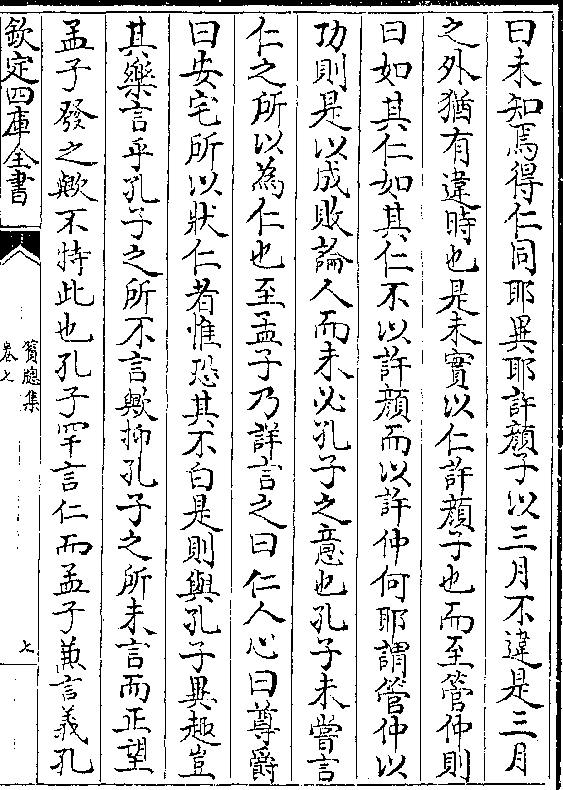 曰未知焉得仁同耶異耶許顔子以三月不違是三月
之外猶有違時也是未實以仁許顔子也而至管仲則
曰如其仁如其仁不以許顔而以許仲何耶謂管仲以
功則是以成敗論人而未必孔子之意也孔子未嘗言
仁之所以為仁也至孟子乃詳言之曰仁人心曰尊爵
曰安宅所以狀仁者惟恐其不白是則與孔子異趣豈
其樂言乎孔子之所不言歟抑孔子之所未言而正望
孟子發之歟不特此也孔子罕言仁而孟子兼言義孔
欽定四庫全書
篔牕集
卷七
七